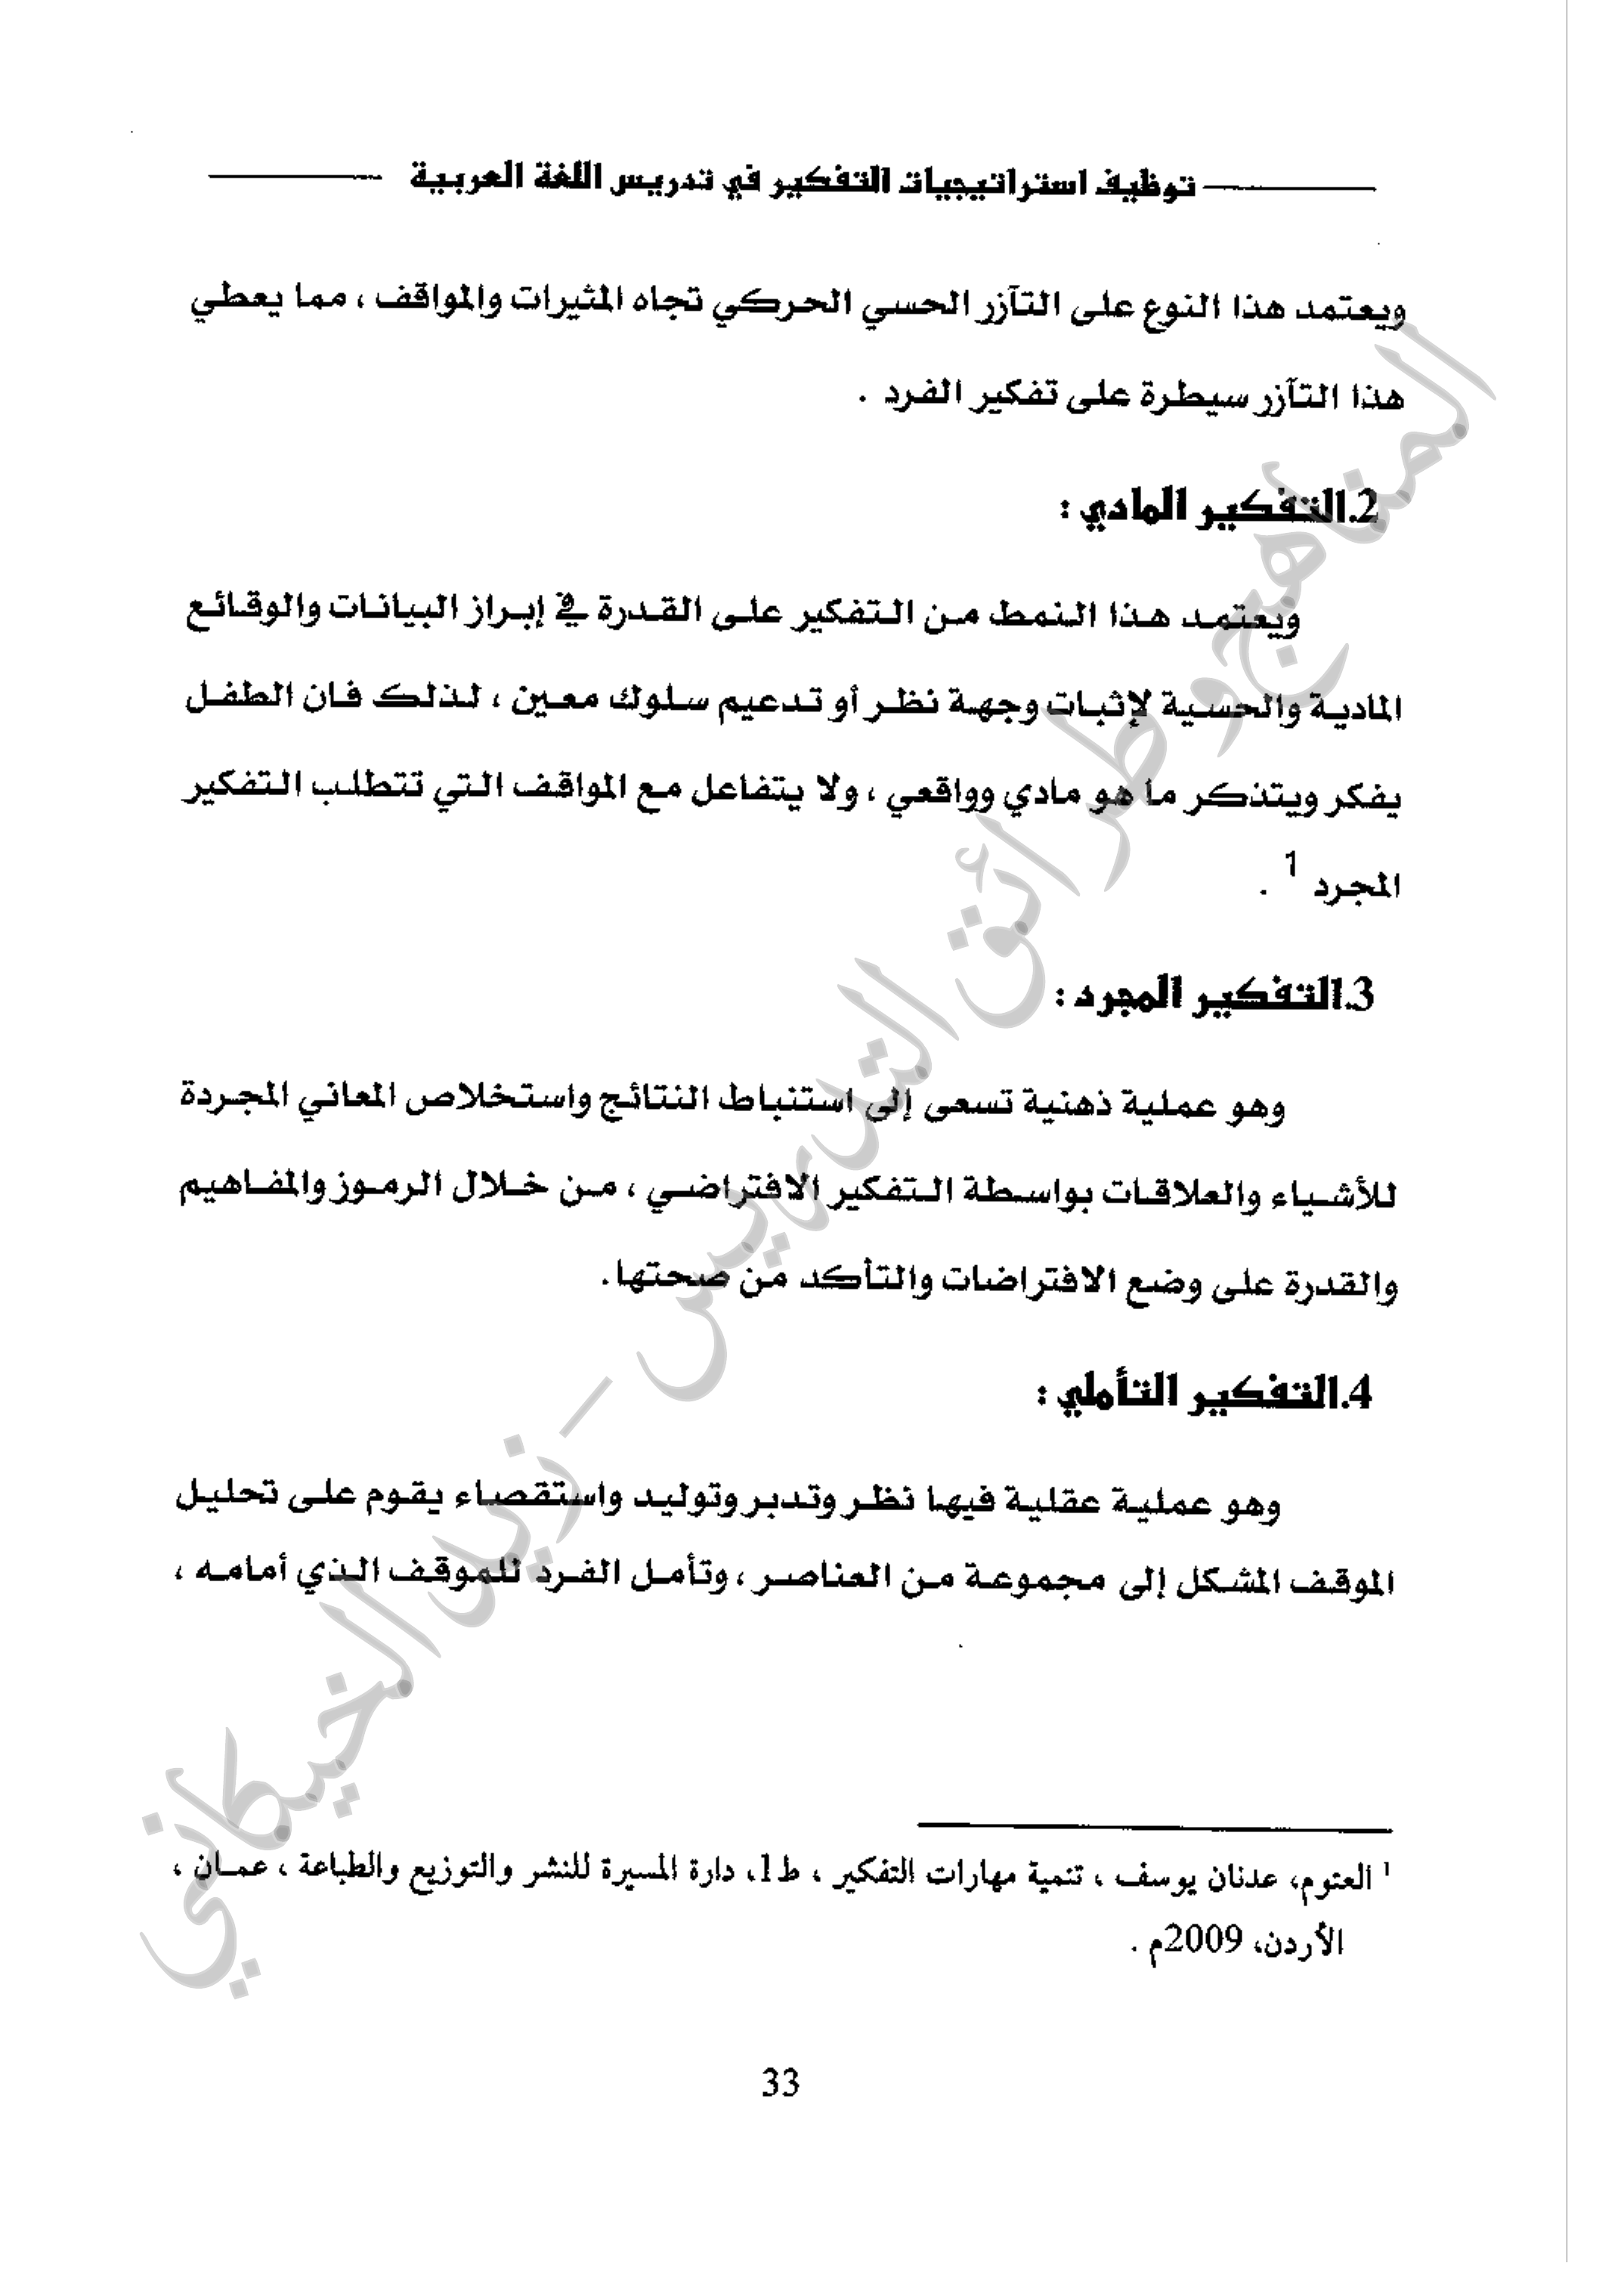 توظيف استراتيجيات التفكير في تدريس اللغة العربية
ويعتمد هذا النوع على التآزر الحسي الحركي تجاه المثيرات والمواقف ، مما يعطي
هذا التآزر سيطرة على تفكير الفرد .
2.التفكير المادي :
ويعتمد هذا النمط من التفكير على القدرة في إبراز البيانات والوقائع
المادية والحسية لإثبات وجهة نظر أو تدعيم سلوك معين ، لذلك فان الطفل
يفكر ويتذكر ما هو مادي وواقعي ، ولا يتفاعل مع المواقف التي تتطلب التفكير
المجرد 1 .
3.التفكير المجرد :
وهو عملية ذهنية تسعى إلى استنباط النتائج واستخلاص المعاني المجردة
للأشياء والعلاقات بواسطة التفكير الافتراضي ، من خلال الرموز والمفاهيم
والقدرة على وضع الافتراضات والتأكد من صحتها.
4.التفكير التأملي :
وهو عملية عقلية فيها نظر وتدبر وتوليد واستقصاء يقوم على تحليل
الموقف المشكل إلى مجموعة من العناصر ، وتأمل الفرد للموقف الذي أمامه ،
1 العتوم، عدنان يوسف ، تنمية مهارات التفكير ، ط1، دارة المسيرة للنشر والتوزيع والطباعة ، عمان ،
الأردن، 2009م .
33
المناهج وطرائق التدريس – زيد الخيكاني